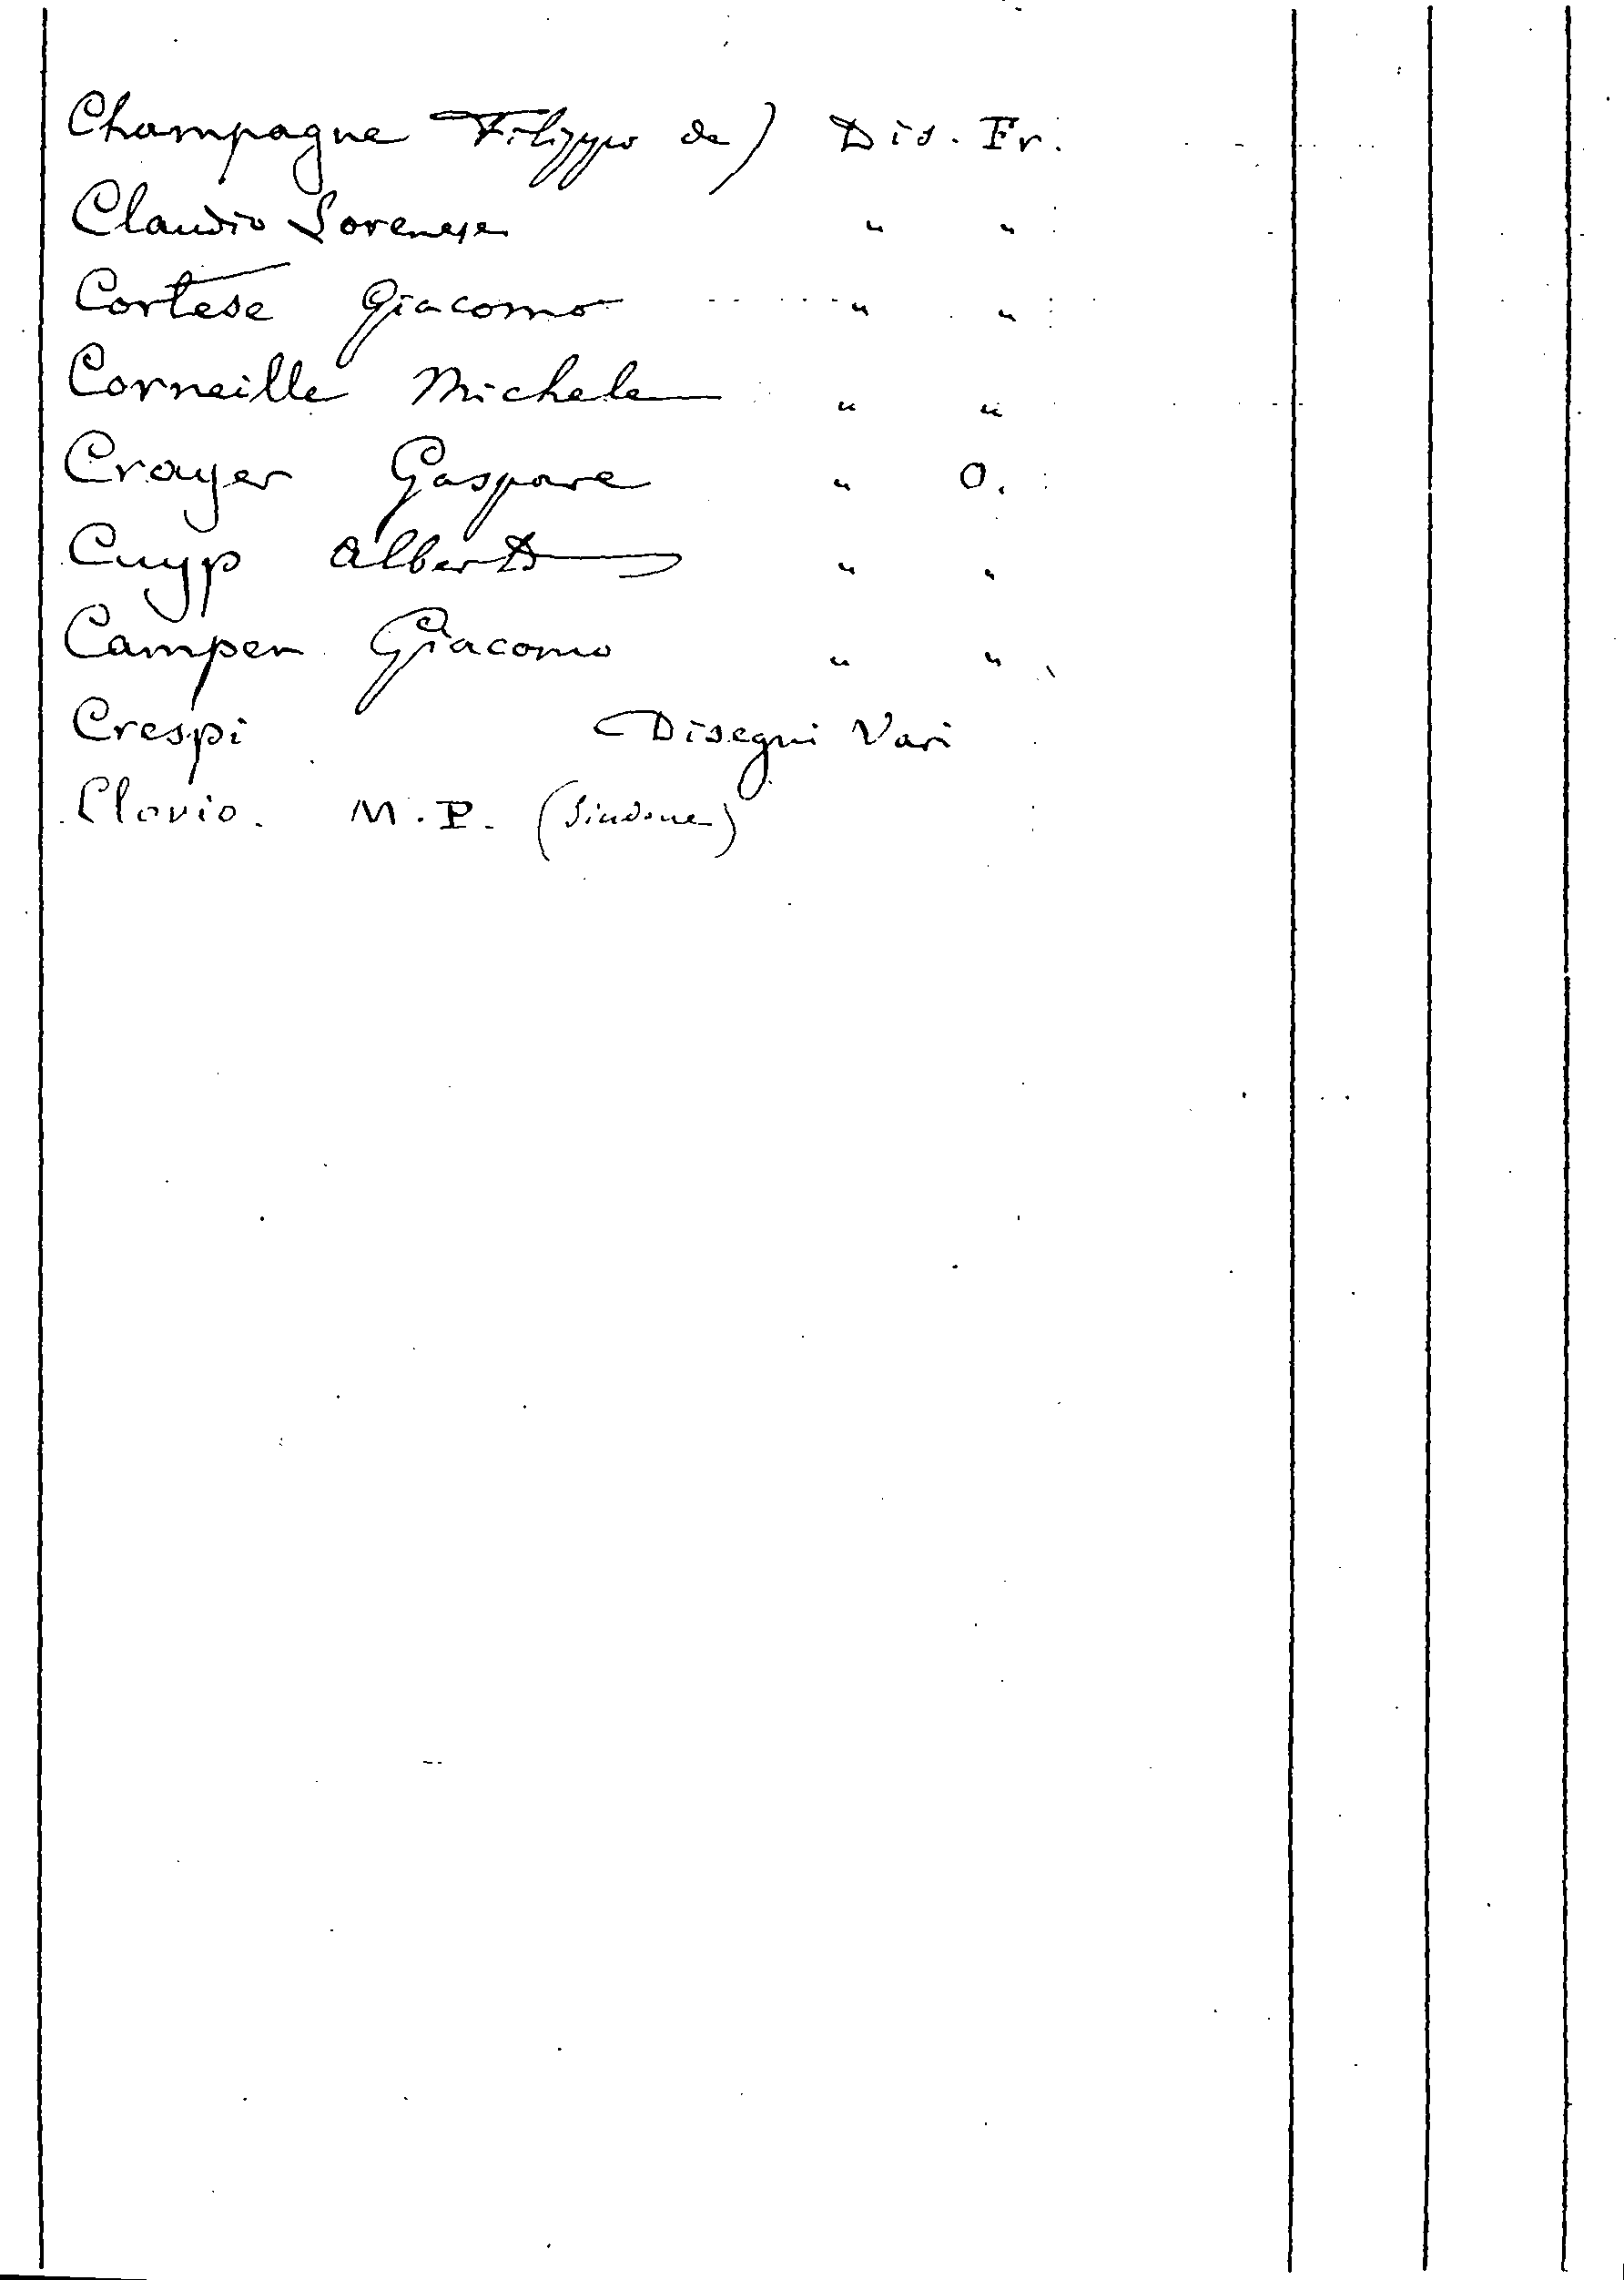 Champagne Filippo de) Dis. Fr.
Claudio Lorenese " "
Cortese Giacomo " "
Corneille Michele " "
Crayer Gaspare " O.
Cuyp Alberto " "
Campen Giacomo " "
Crespi Disegni Vari
Clovio. M. P. (Sindone)